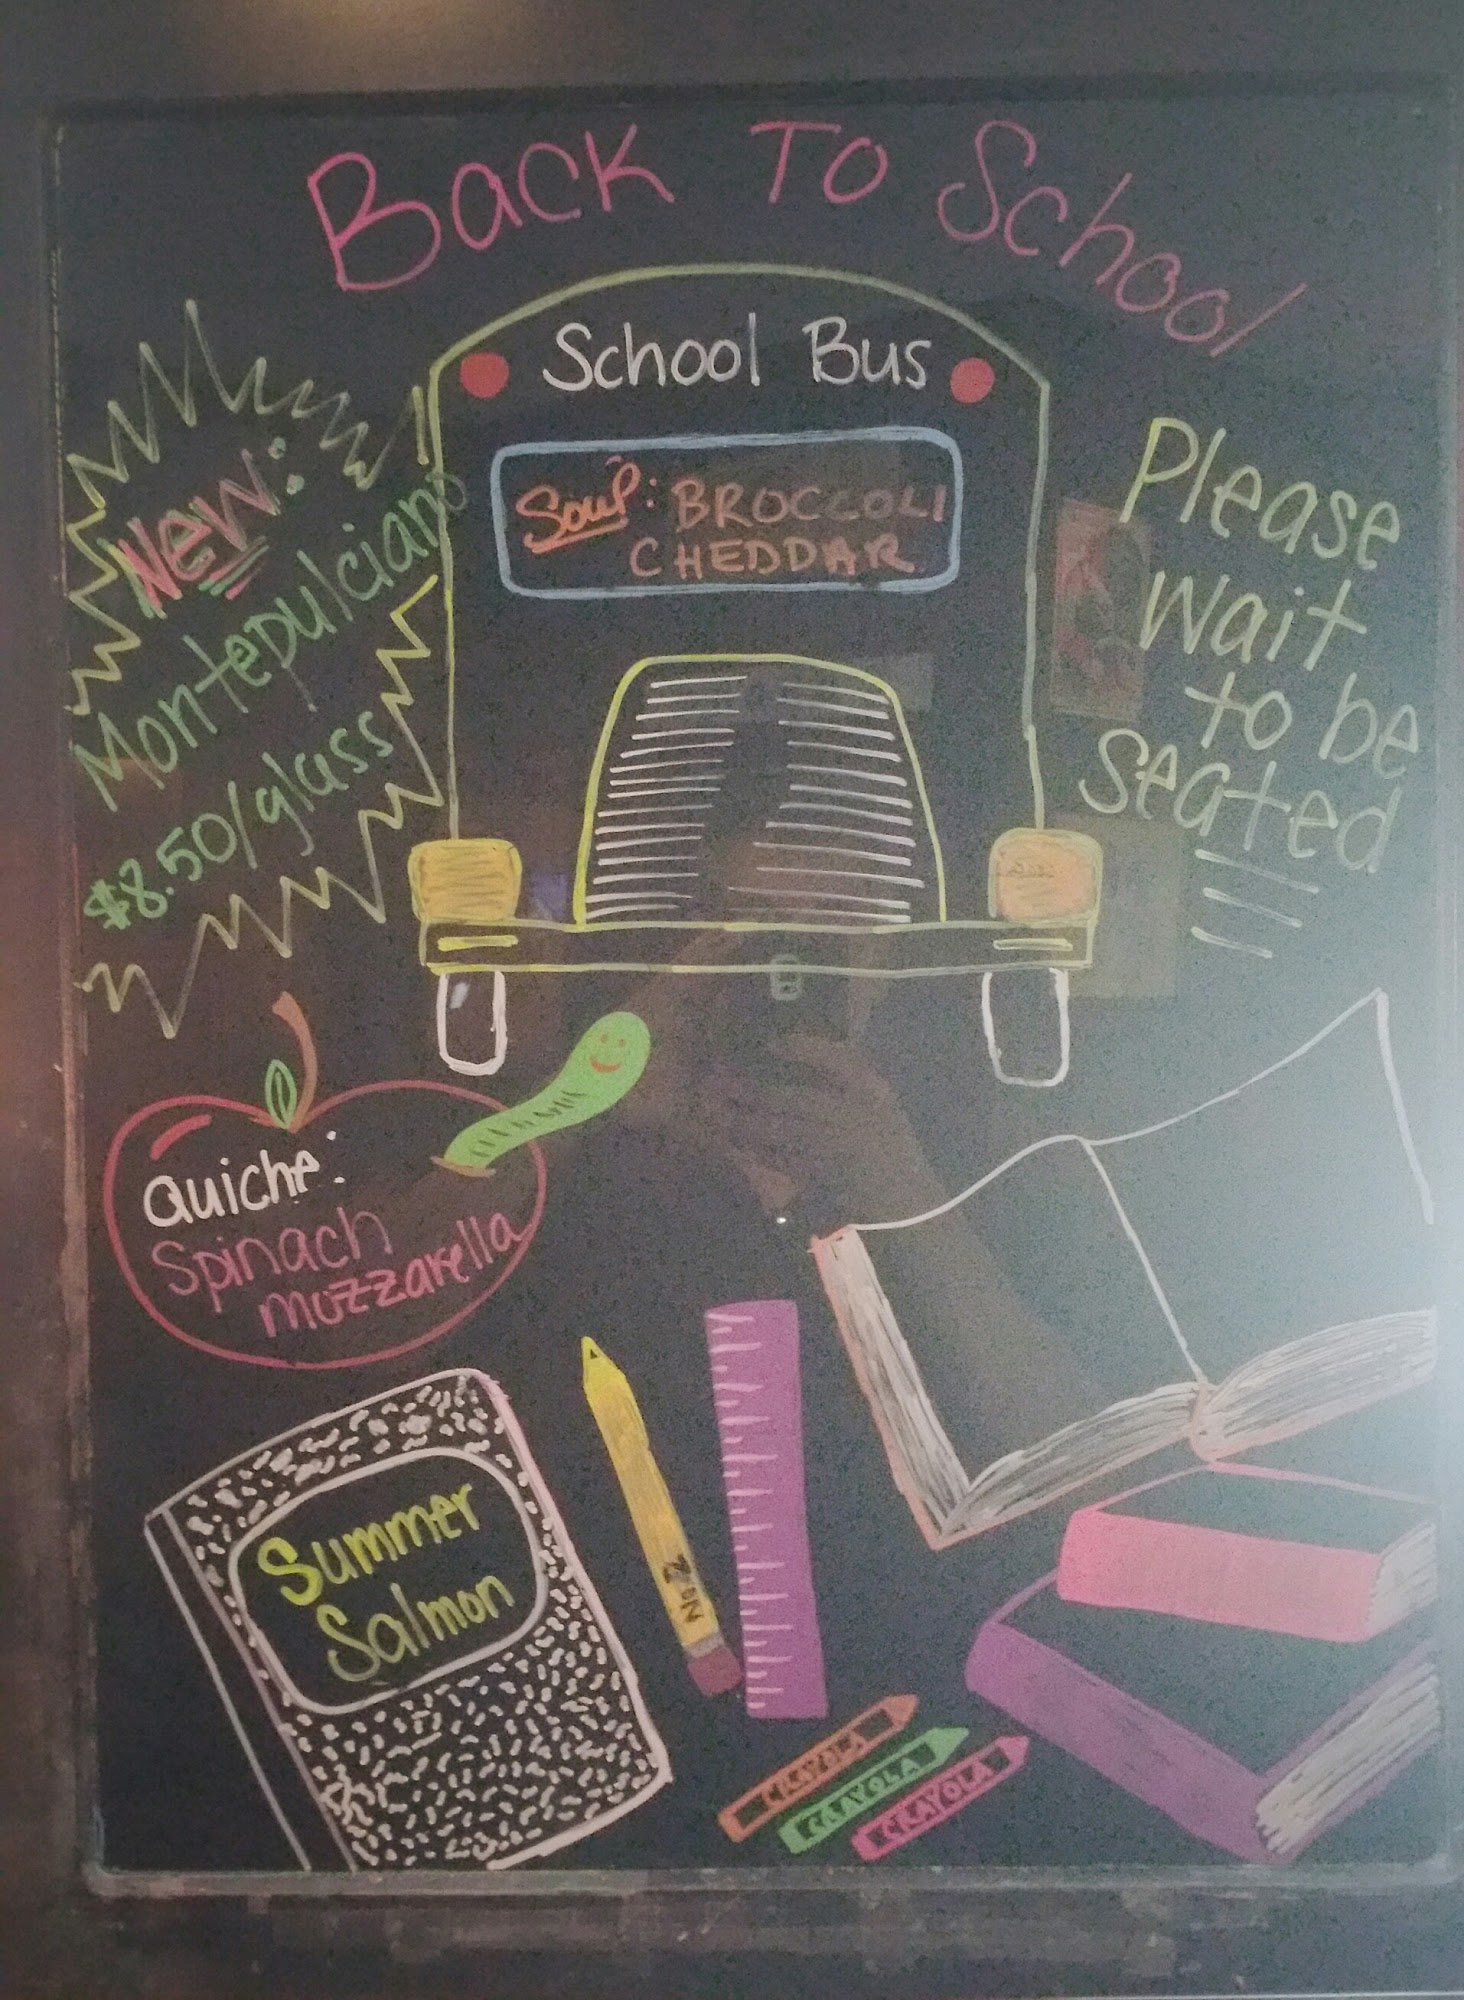 Back To School
School Bus
Soup: BROCCOLI
CHEDDAR
New:
Montepulciano
$8.50/glass
Please
wait
to be
seated
Quiche:
Spinach
mozzarella
Summer
Salmon
No. 2
CRAYOLA
CRAYOLA
CRAYOLA